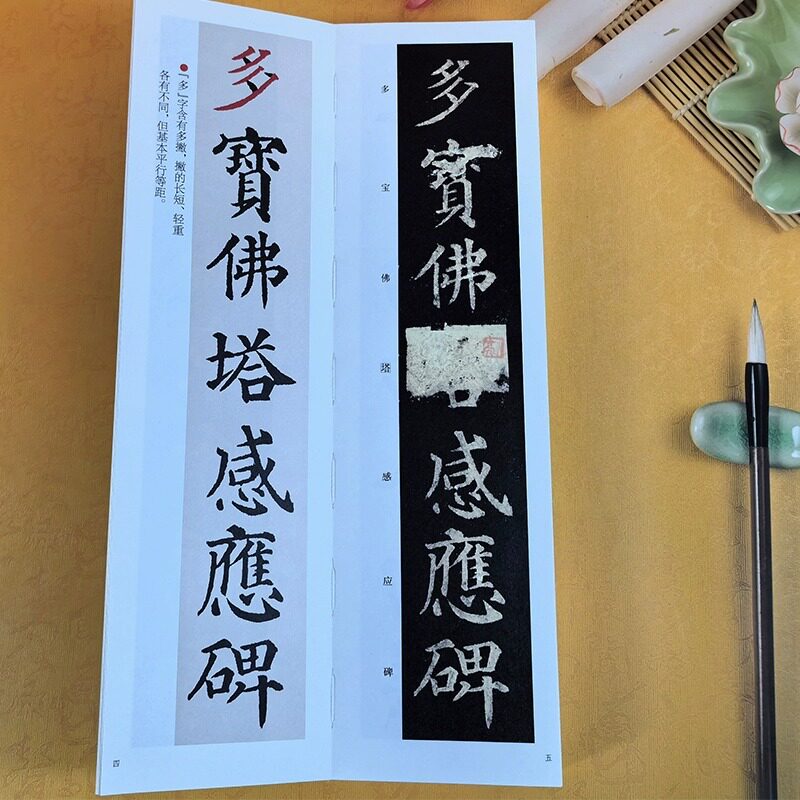 ●「多」字含有多撇，撇的长短、轻重
各有不同，但基本平行等距。
多寶佛塔感應碑
四
多宝佛塔感应碑
多寶佛
感應碑
五